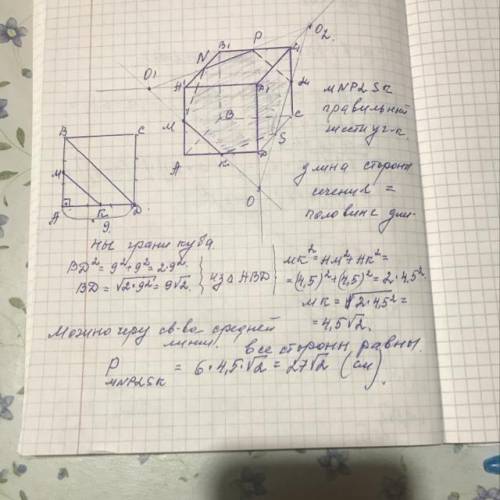 O₂
O₁
N
B₁
P
A₁
D₁
M
B
C
A
K
D
S
O
MNP2SK
правильный
шестиуг-к.
длина стороны
сечения =
половине
B
C
M
A
K
D
9
ны грани куба.
BD² = 9²+9² = 2·9²
BD = √2·9² = 9√2
из △ ABD
MK² = AM² + AK² =
= (4,5)² + (4,5)² = 2·4,5²
MK = √2·4,5² =
= 4,5√2.
Можно через св-во средней
линии.
все стороны равны
P MNP2SK = 6·4,5·√2 = 27√2 (см)